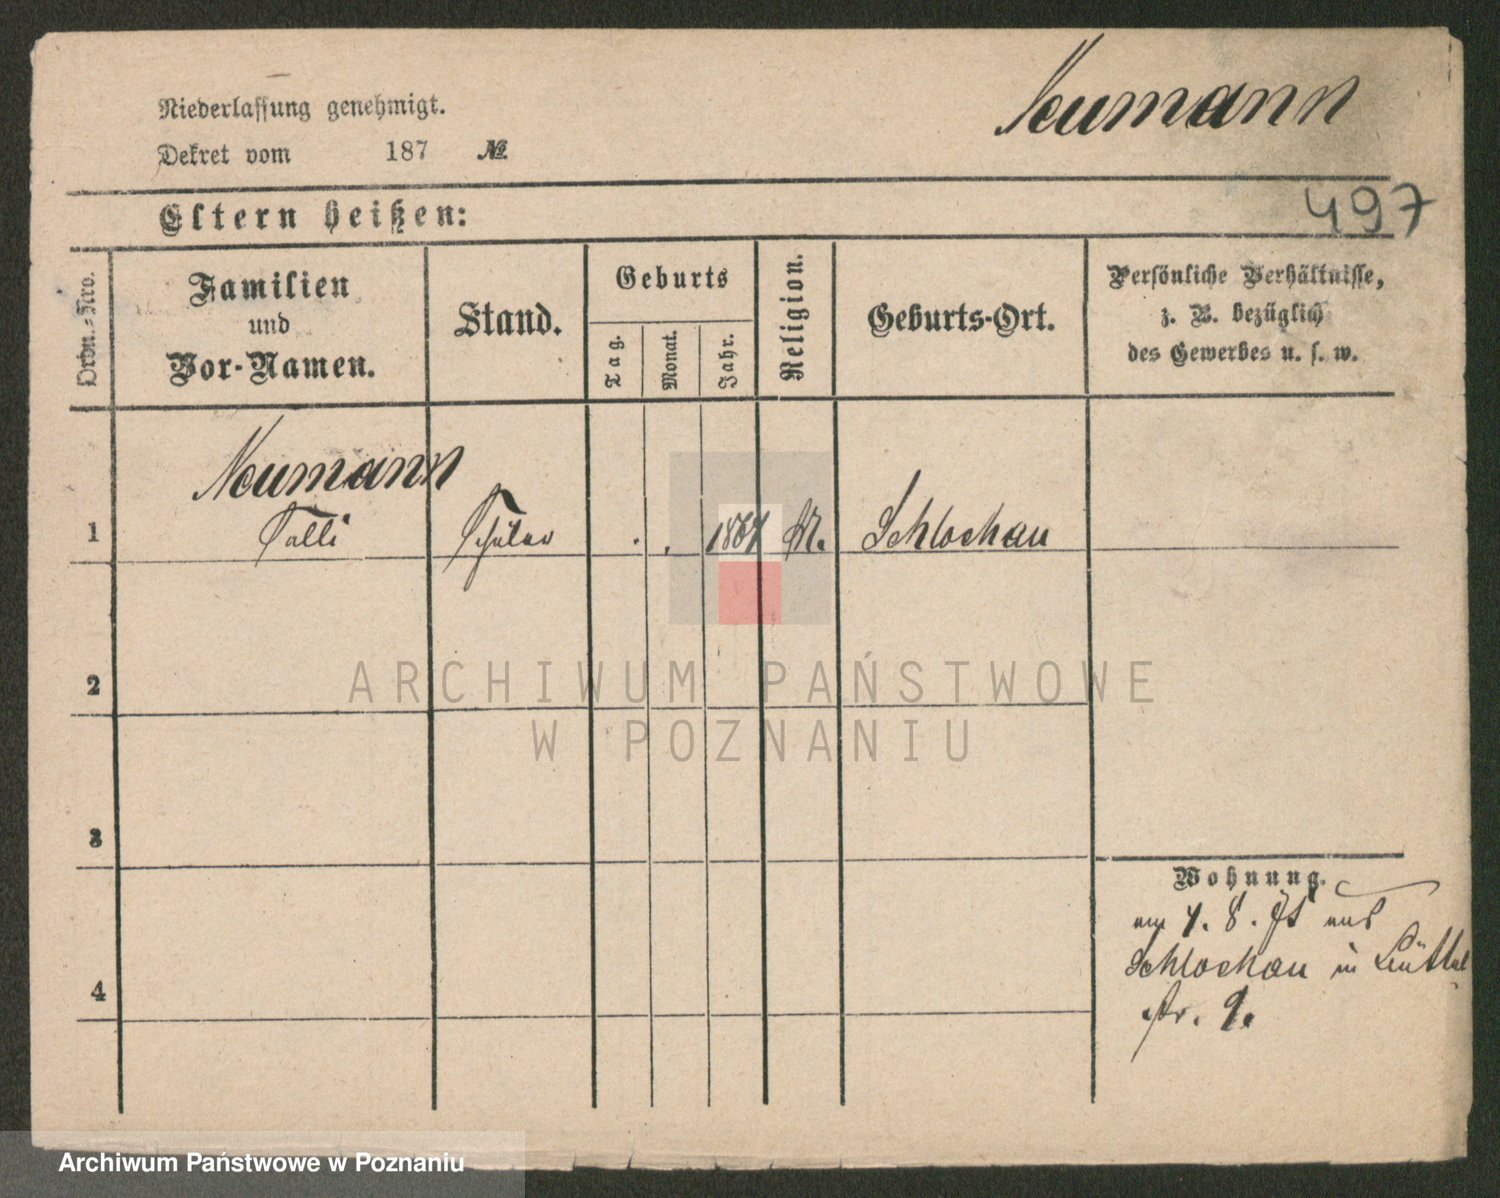 Neumann
Niederlassung genehmigt.
Dekret vom 187 №
497
Eltern heißen:
Ordn.-Nro.
Familien
und
Vor-Namen.
Stand.
Geburts
Tag.
Monat.
Jahr.
Religion.
Geburts-Ort.
Persönliche Verhältnisse,
z. B. bezüglich
des Gewerbes u. s. w.
Neumann
1 Schüler 1864 Schlochau
2
ARCHIWUM PAŃSTWOWE
W POZNANIU
3
4
Wohnung.
4. 8. aus
Schlochau in
str. 9.
Archiwum Państwowe w Poznaniu